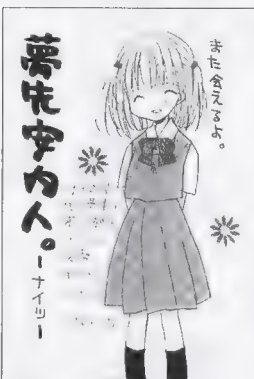 また会えるよ。
夢先案内人。
ーナイツー